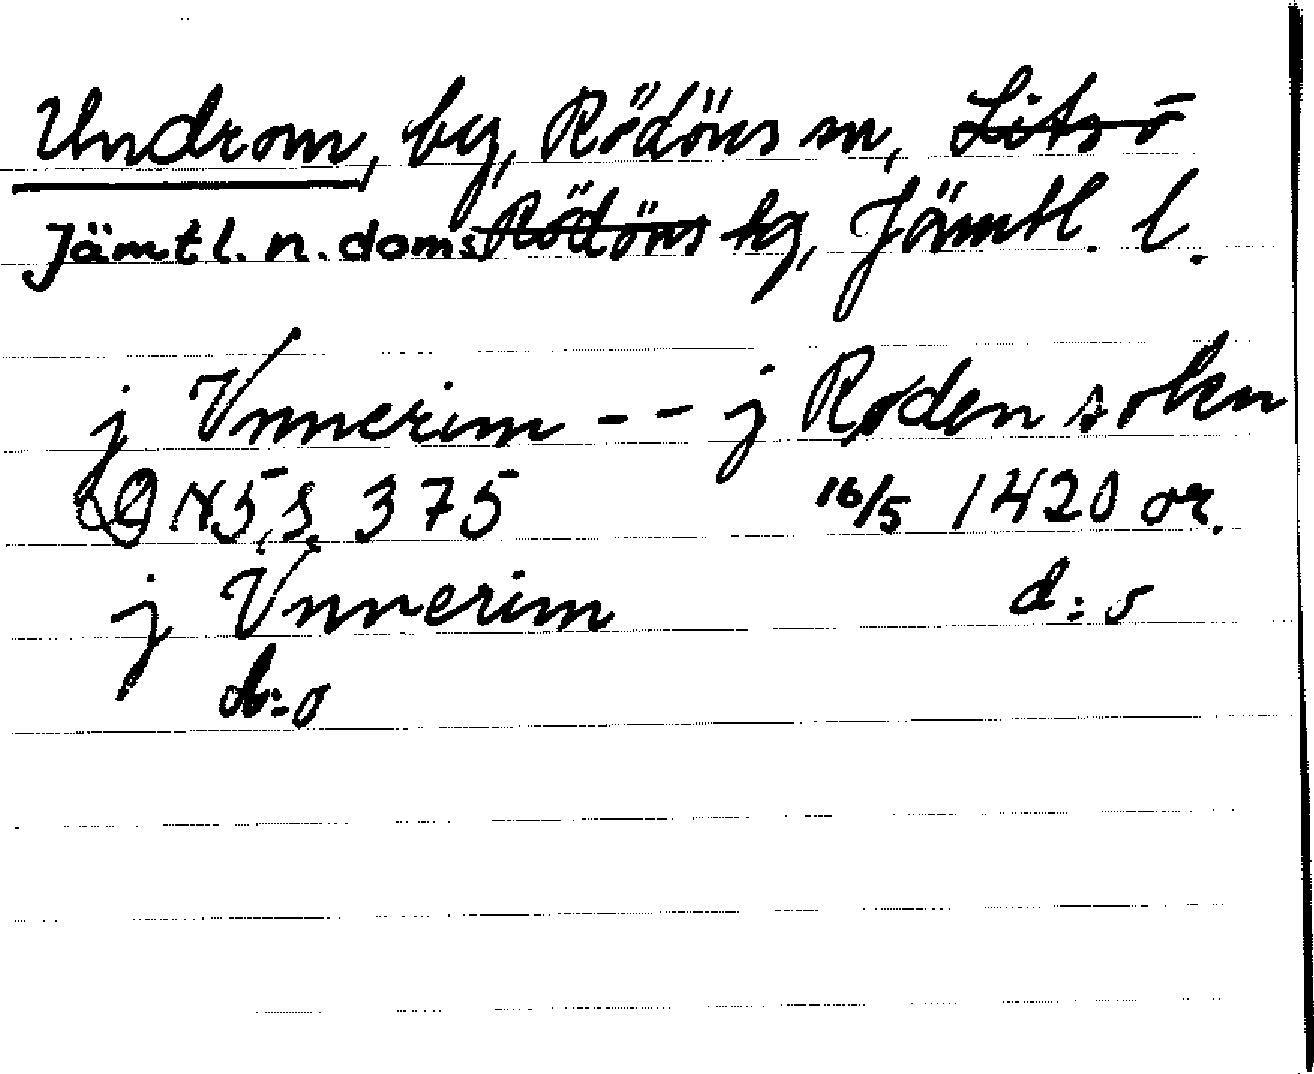 Undrom, by, Rödöns sn, Lits o
Jämtl. n. doms Rödöns hg, Jämtl. l.
j Vnnerim -- j Røden soken
DN 5 s. 375 16/5 1420 or.
j Vnnerim d:o
d:o